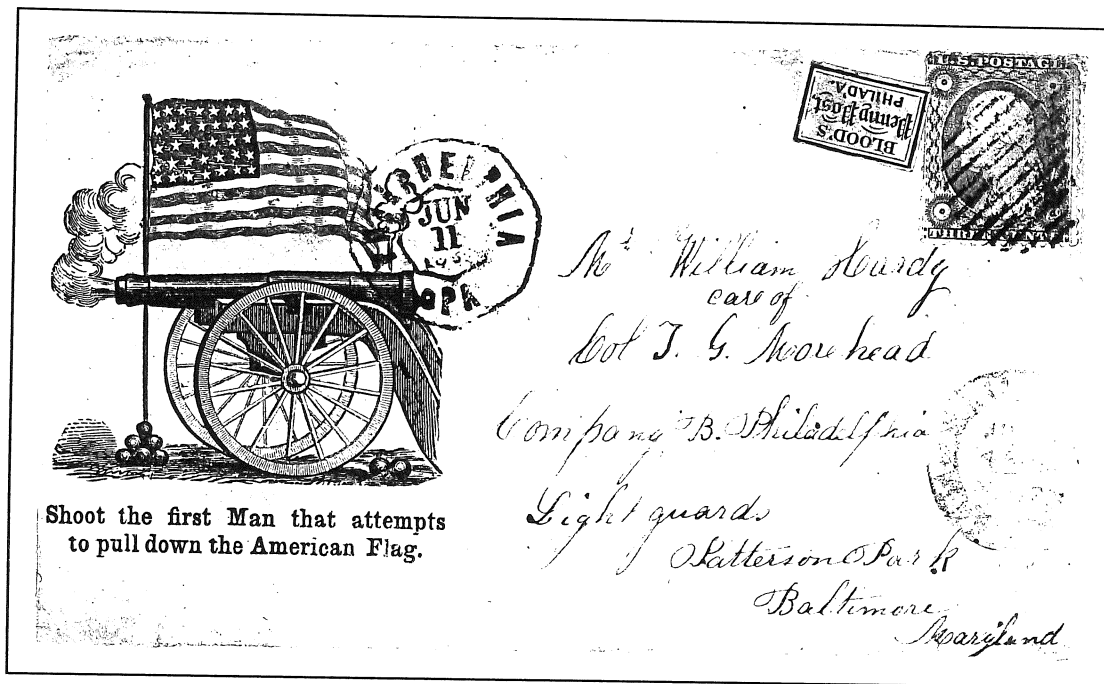 BLOOD'S
Penny Post
PHILAD'A.
U.S. POSTAGE
THREE CENTS
PHILADELPHIA
JUN
11
PA
Mr William Hurdy
care of
Col T. G. Morehead
Company B. Philadelphia
Light guards
Patterson Park
Baltimore
Maryland
Shoot the first Man that attempts
to pull down the American Flag.